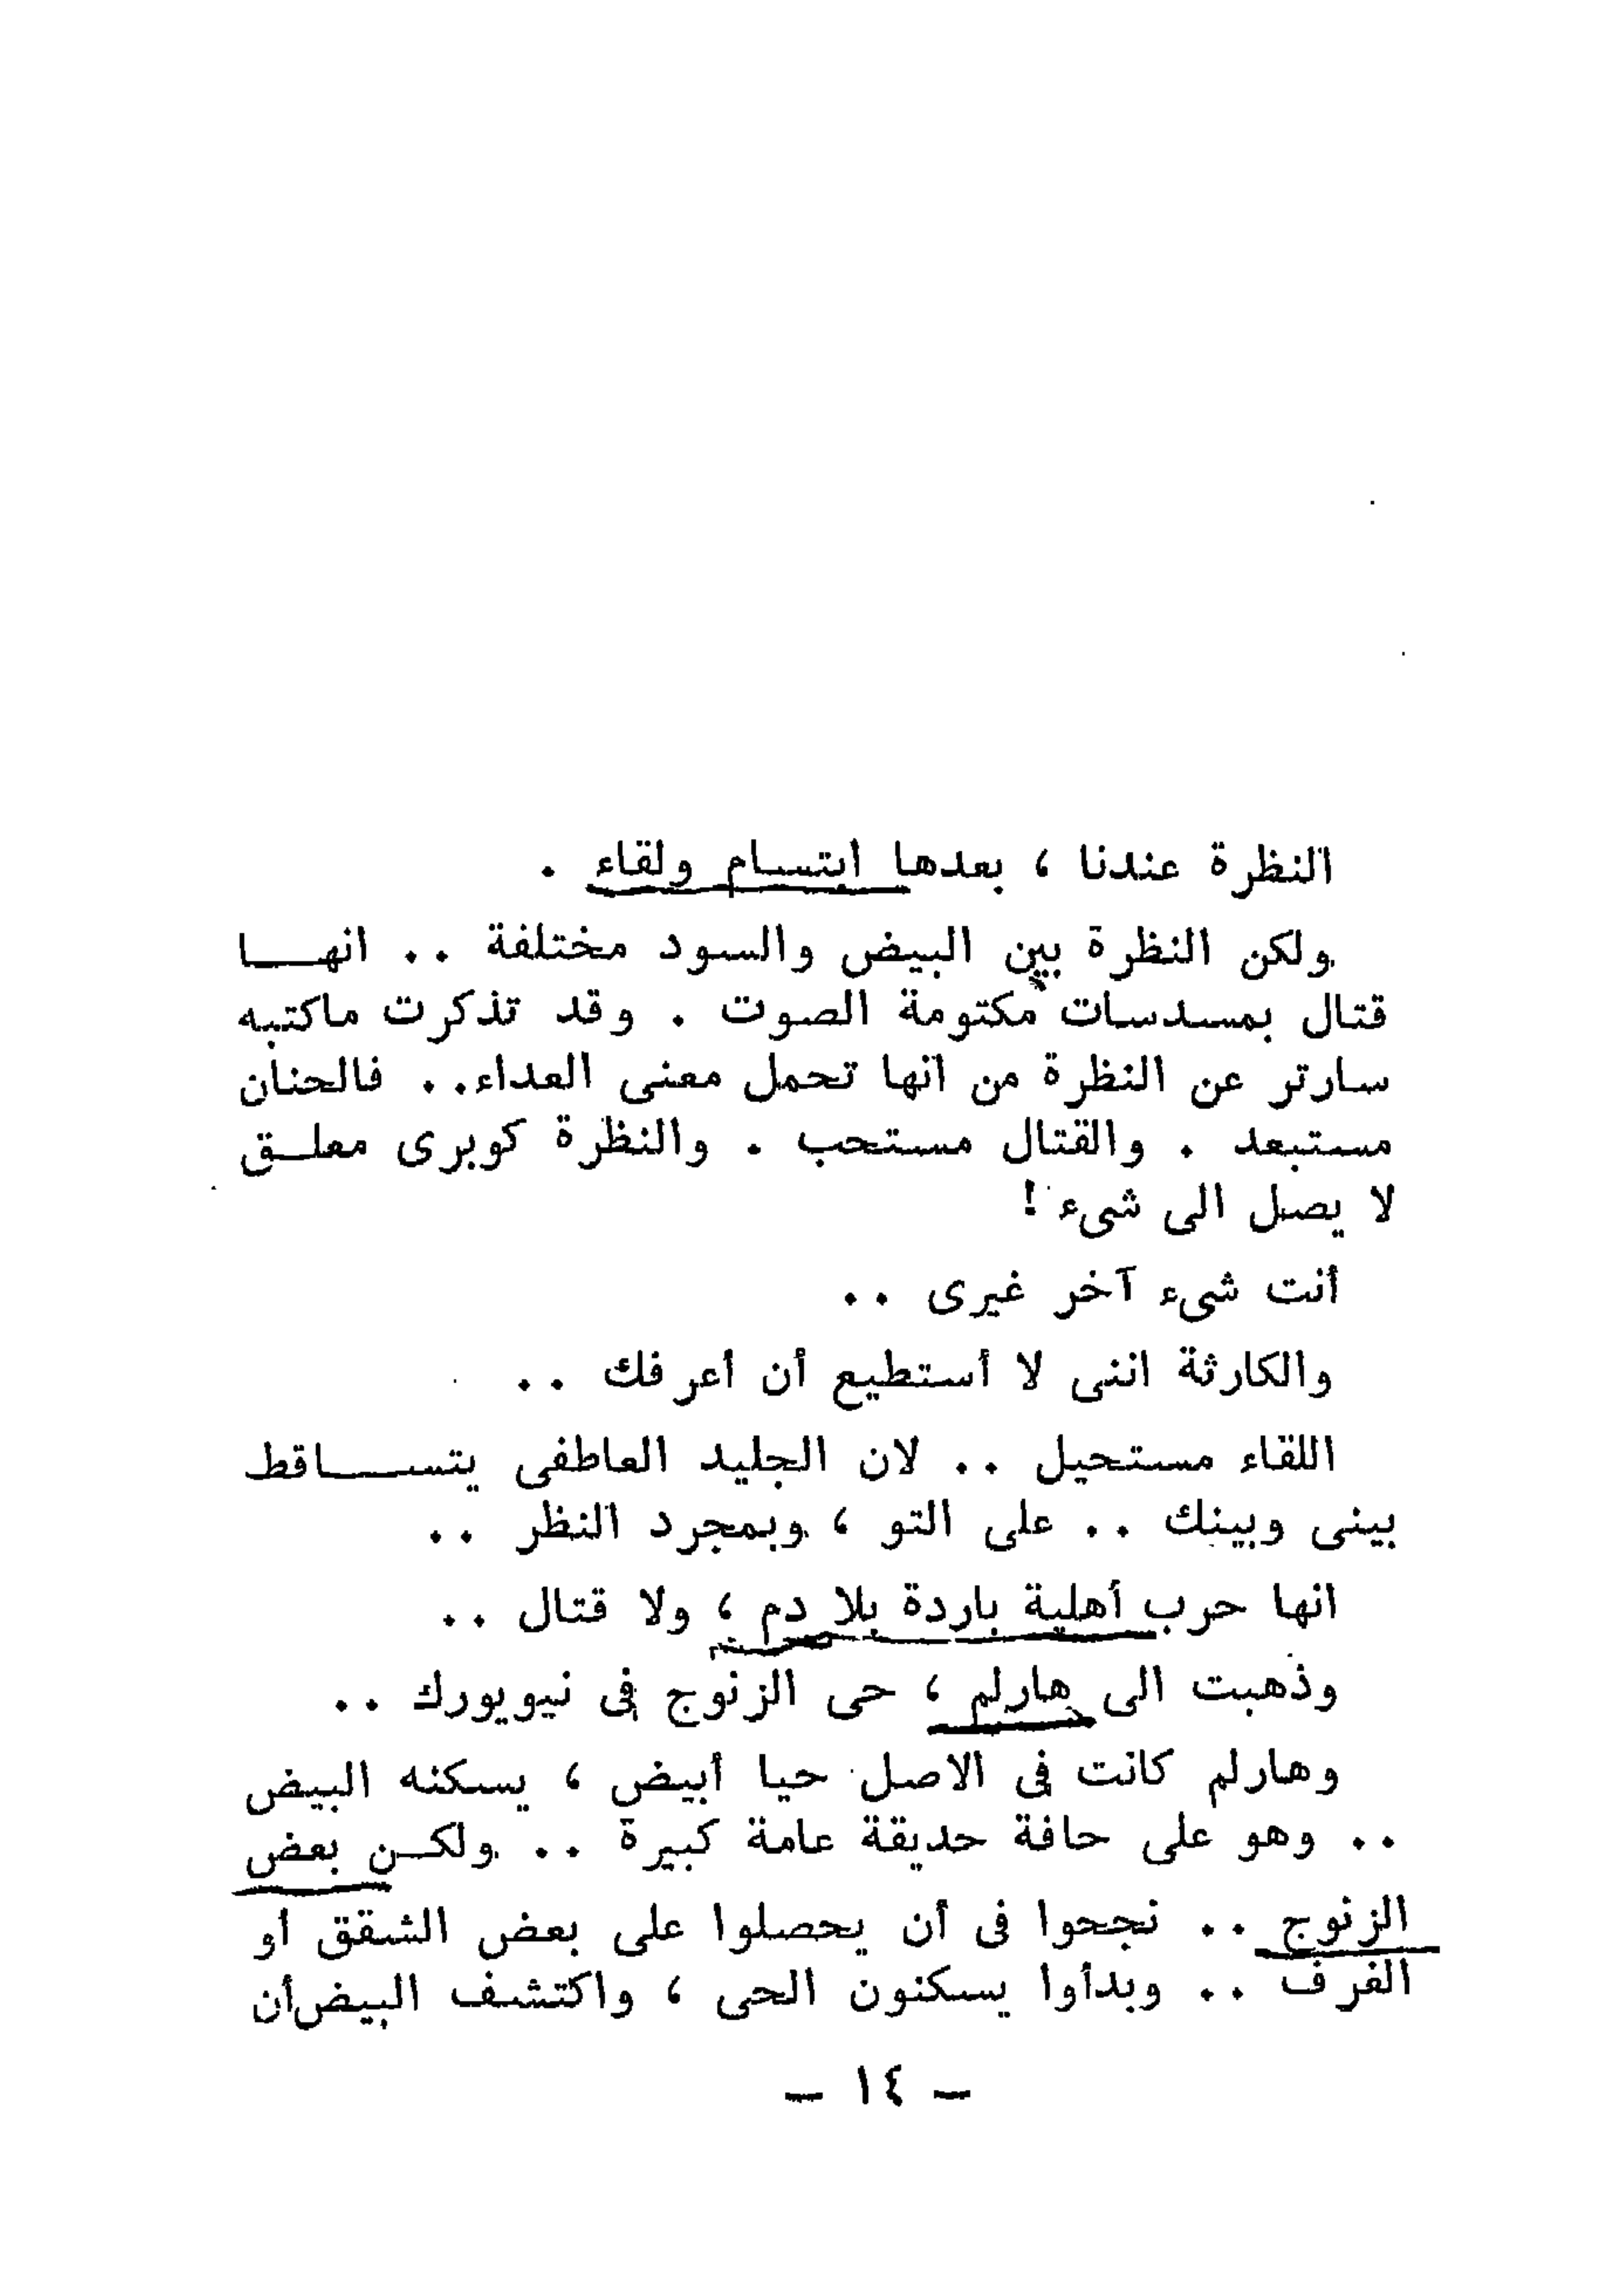 النظرة عندنا ، بعدها ابتسام ولقاء .
ولكن النظرة بين البيض والسود مختلفة .. انها
قتال بمسدسات مكتومة الصوت . وقد تذكرت ماكتبه
سارتر عن النظرة من انها تحمل معنى العداء.. فالحنان
مستبعد . والقتال مستحب . والنظرة كوبرى معلق
لا يصل الى شىء !
أنت شىء آخر غيرى ..
والكارثة اننى لا أستطيع أن أعرفك ..
اللقاء مستحيل .. لان الجليد العاطفى يتساقط
بينى وبينك .. على التو ، وبمجرد النظر ..
انها حرب أهلية باردة بلا دم ، ولا قتال ..
وذهبت الى هارلم ، حى الزنوج فى نيويورك ..
وهارلم كانت فى الاصل حيا أبيض ، يسكنه البيض
.. وهو على حافة حديقة عامة كبيرة .. ولكن بعض
الزنوج .. نجحوا فى أن يحصلوا على بعض الشقق أو
الغرف .. وبدأوا يسكنون الحى ، واكتشف البيض أن
— ١٤ —